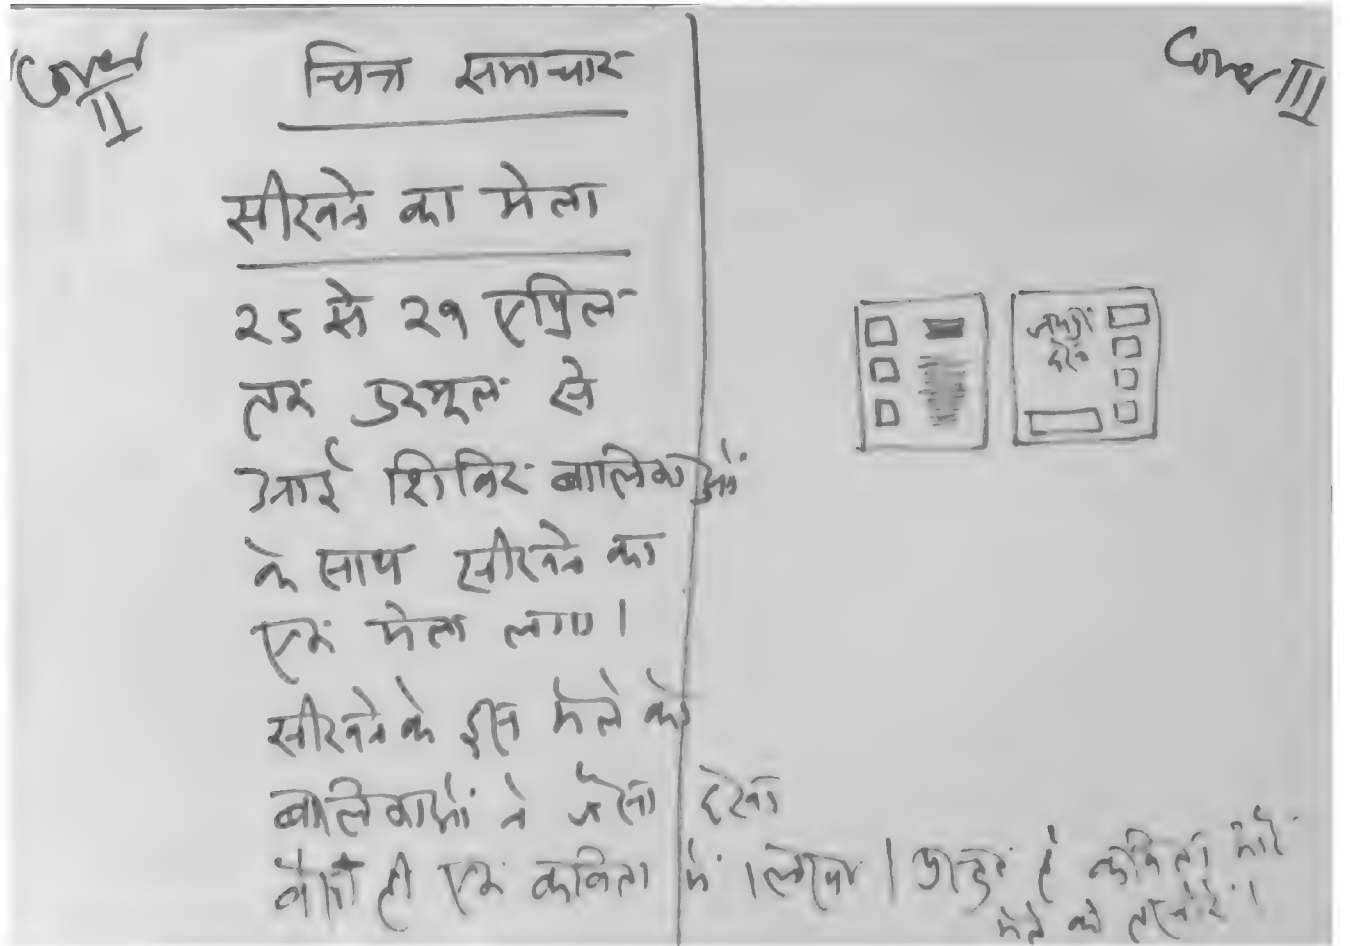 Cover II
चित्र समाचार
सीखने का मेला
२५ से २९ एप्रिल
तक उरमूल से
आई शिविर बालिकाओं
के साथ सीखने का
एक मेला लगा।
सीखने के इस मेले को
बालिकाओं ने जैसा देखा
वैसा ही एक कविता में लिखा। प्रस्तुत है कविता और
मेले की तस्वीरें।
Cover III